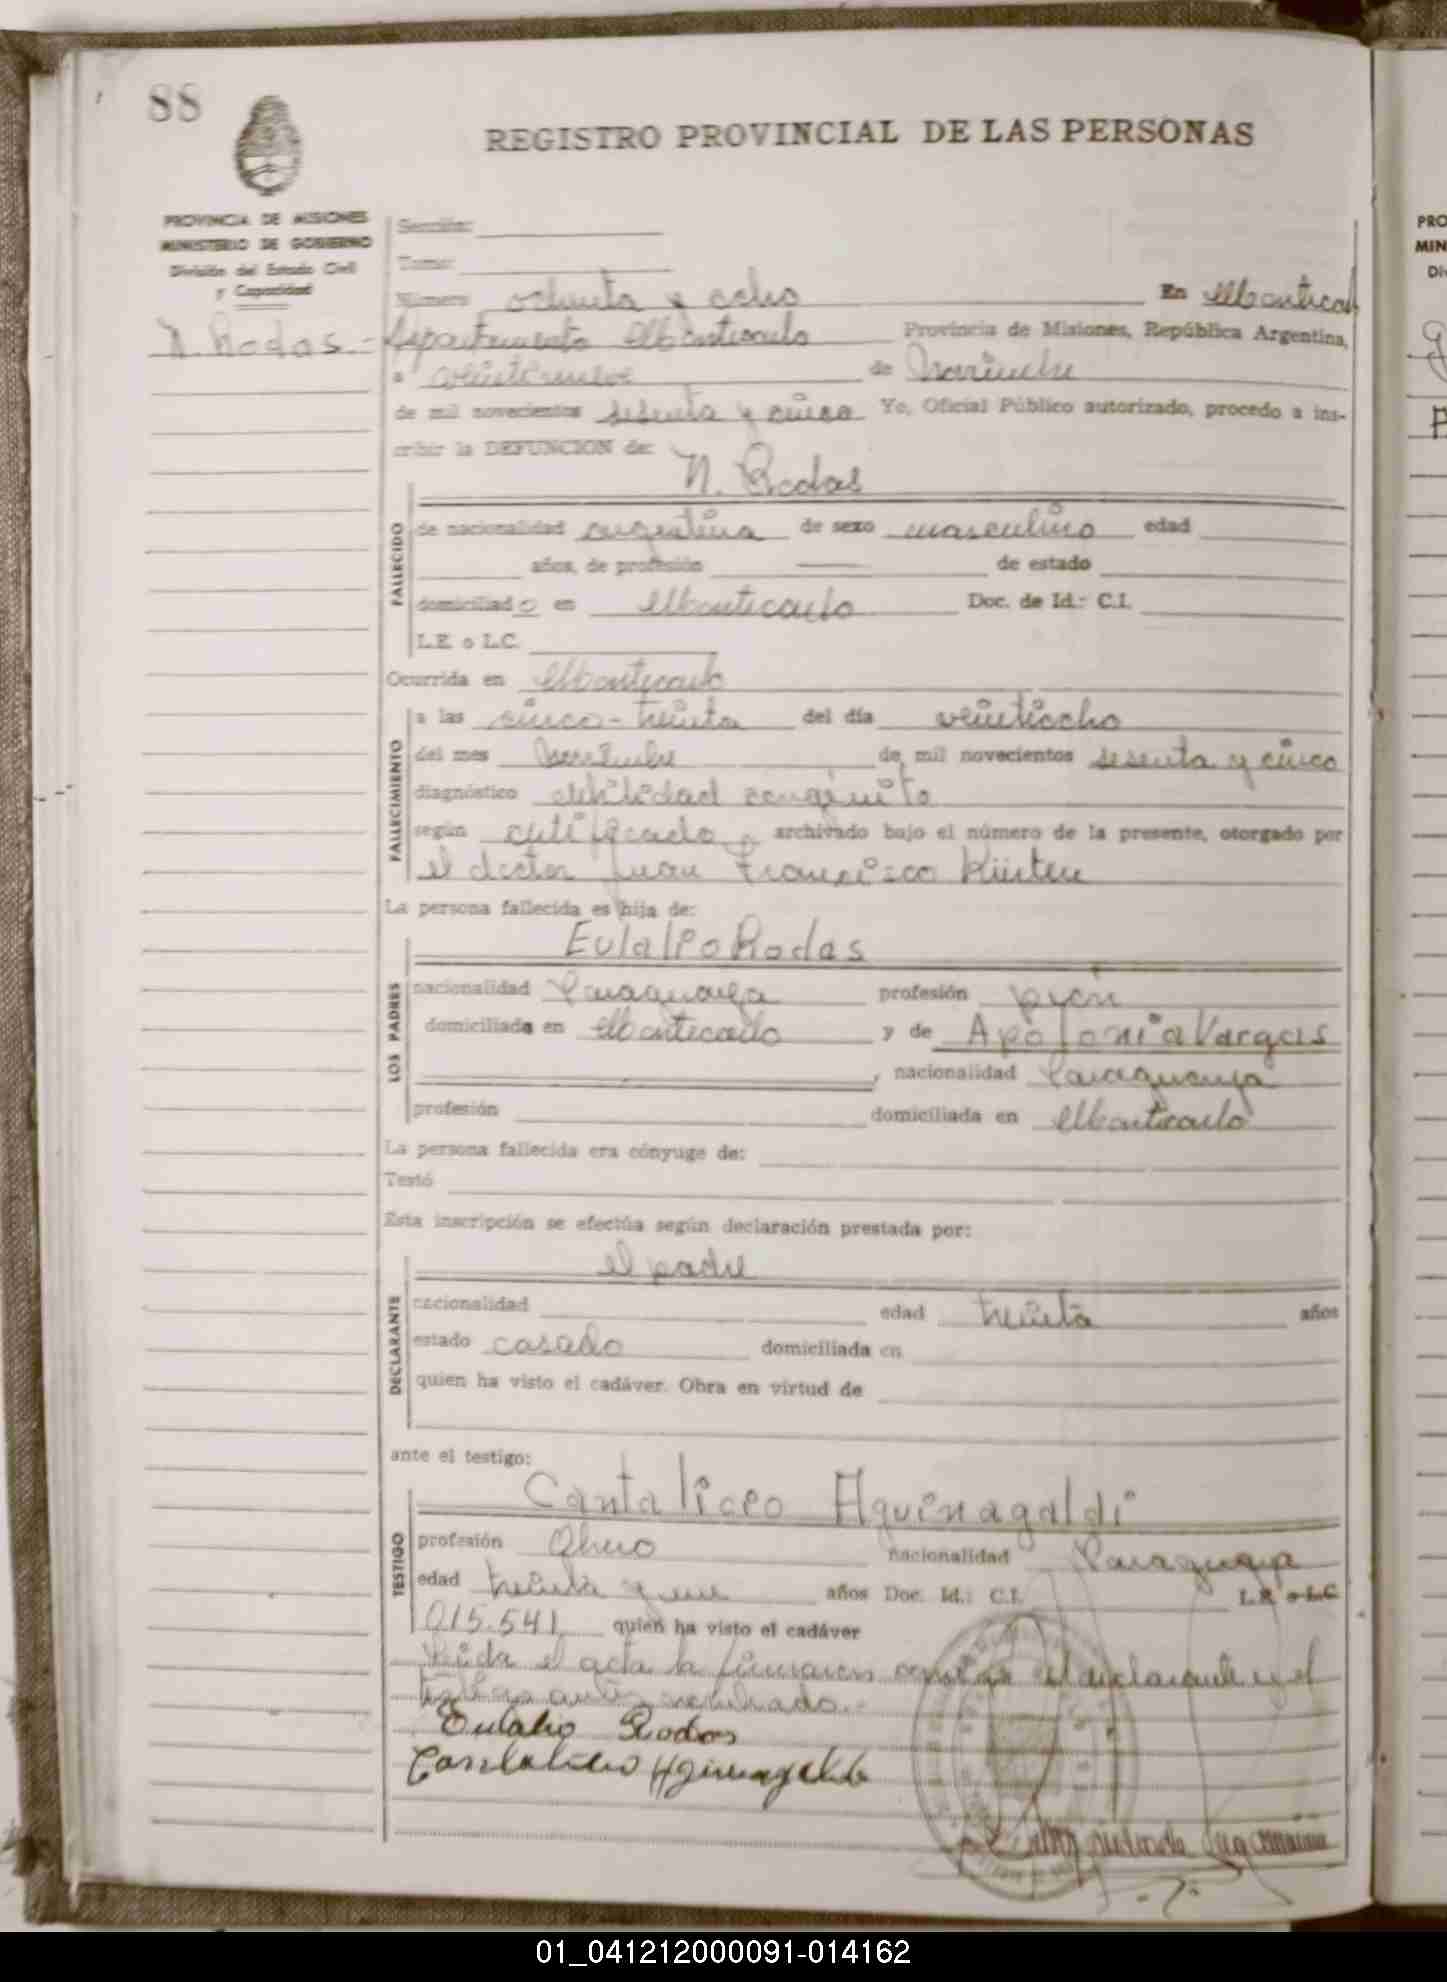 88
REGISTRO PROVINCIAL DE LAS PERSONAS
PROVINCIA DE MISIONES
MINISTERIO DE GOBIERNO
División del Estado Civil
y Capacidad
N. Rodas.-
Sección:
Tomo:
Número ochenta y ocho En Montecarlo
departamento Montecarlo Provincia de Misiones, República Argentina,
a veintinueve de Noviembre
de mil novecientos sesenta y cinco Yo, Oficial Público autorizado, procedo a ins-
cribir la DEFUNCION de:
N. Rodas
FALLECIDO
de nacionalidad argentina de sexo masculino edad
años, de profesión de estado
domiciliado en Montecarlo Doc. de Id.: C.I.
L.E. o L.C.
Ocurrida en Montecarlo
FALLECIMIENTO
a las cinco-treinta del día veintiocho
del mes Noviembre de mil novecientos sesenta y cinco
diagnóstico debilidad congénito
según certificado archivado bajo el número de la presente, otorgado por
el doctor Juan Francisco Künten
La persona fallecida es hija de:
LOS PADRES
Eulalio Rodas
nacionalidad Paraguaya profesión peón
domiciliada en Montecarlo y de Apolonia Vargas
, nacionalidad Paraguaya
profesión domiciliada en Montecarlo
La persona fallecida era cónyuge de:
Testó
Esta inscripción se efectúa según declaración prestada por:
DECLARANTE
el padre
nacionalidad edad treinta años
estado casado domiciliada en
quien ha visto el cadáver. Obra en virtud de
ante el testigo:
TESTIGO
Cantaliceo Aguinagaldi
profesión Obrero nacionalidad Paraguaya
edad treinta y un años Doc. Id.: C.I. L.E. o L.C.
015.541 quien ha visto el cadáver
Leida el acta la firmaron el declarante y el
testigo antes nombrado.-
Eulalio Rodas
PRO
MIN
01_041212000091-014162